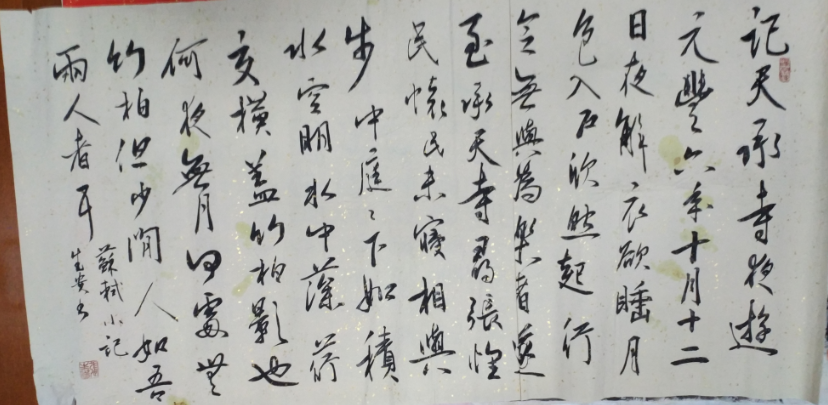 記天承寺夜遊
元豐六年十月十二
日夜解衣欲睡月
色入戶欣然起行
念無與為樂者遂
至承天寺尋張惶
民懷民未寢相與
步中庭〻下如積
水空明水中藻荇
交橫蓋竹柏影也
何夜無月何處無
竹柏但少閒人如吾
兩人者耳
蘇軾小記